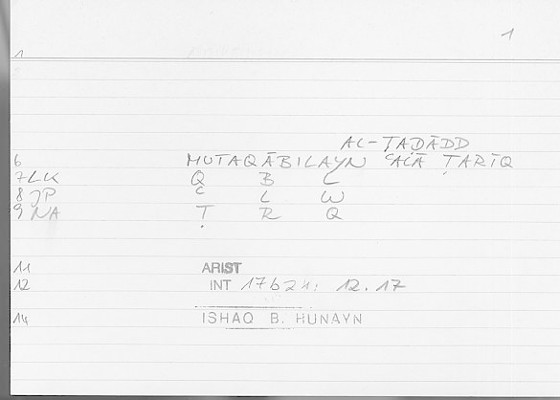 1
1
AL-ṬAḌĀDD
6 MUTAQĀBILAYN ʿALĀ ṬARĪQ
7 LK Q B L
8 JP ʿ L W
9 NA Ṭ R Q
11 ARIST
12 INT 17b24: 12.17
14 ISHAQ B. HUNAYN